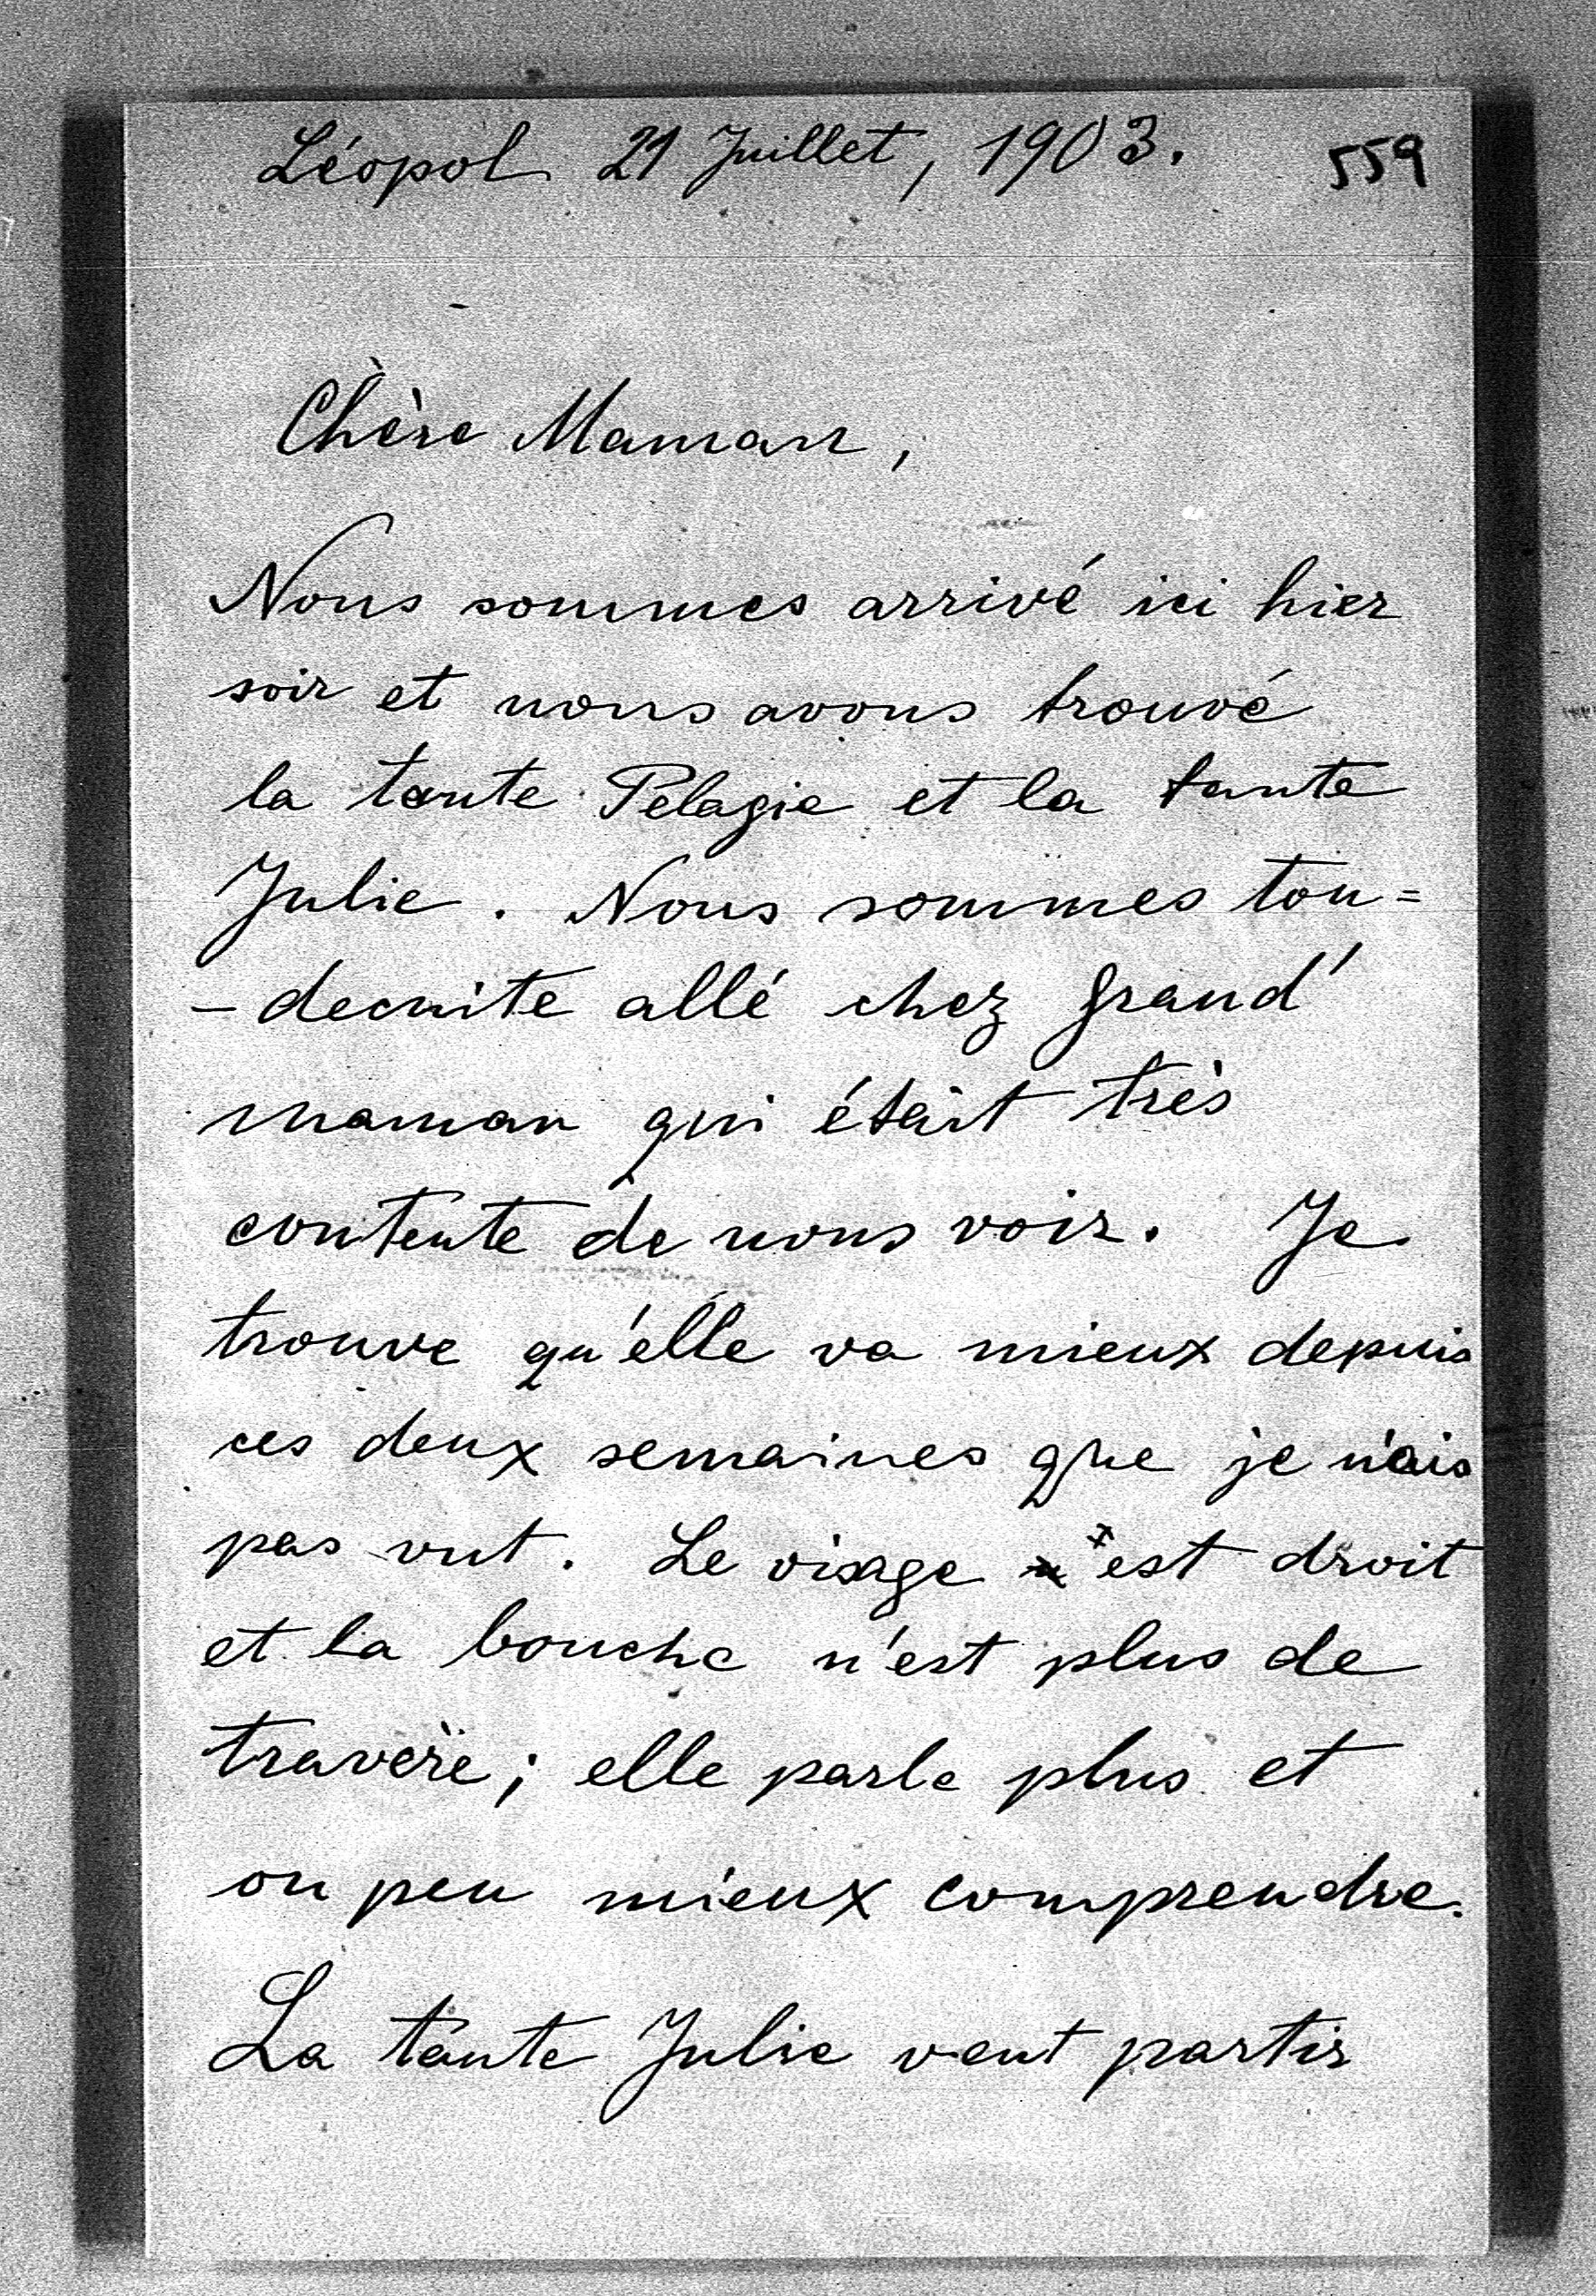 Léopol 21 Juillet, 1903. 559
Chère Maman,
Nous sommes arrivé ici hier
soir et nous avons trouvé
la tante Pelagie et la tante
Julie. Nous sommes tou=
-decuite allé chez grand'
maman qui était très
contente de nous voir. Je
trouve qu'élle va mieux depuis
ces deux semaines que je n'ais
pas vut. Le visage est droit
et la bouche n'est plus de
travère; elle parle plus et
on peu mieux comprendre.
La tante Julie veut partir